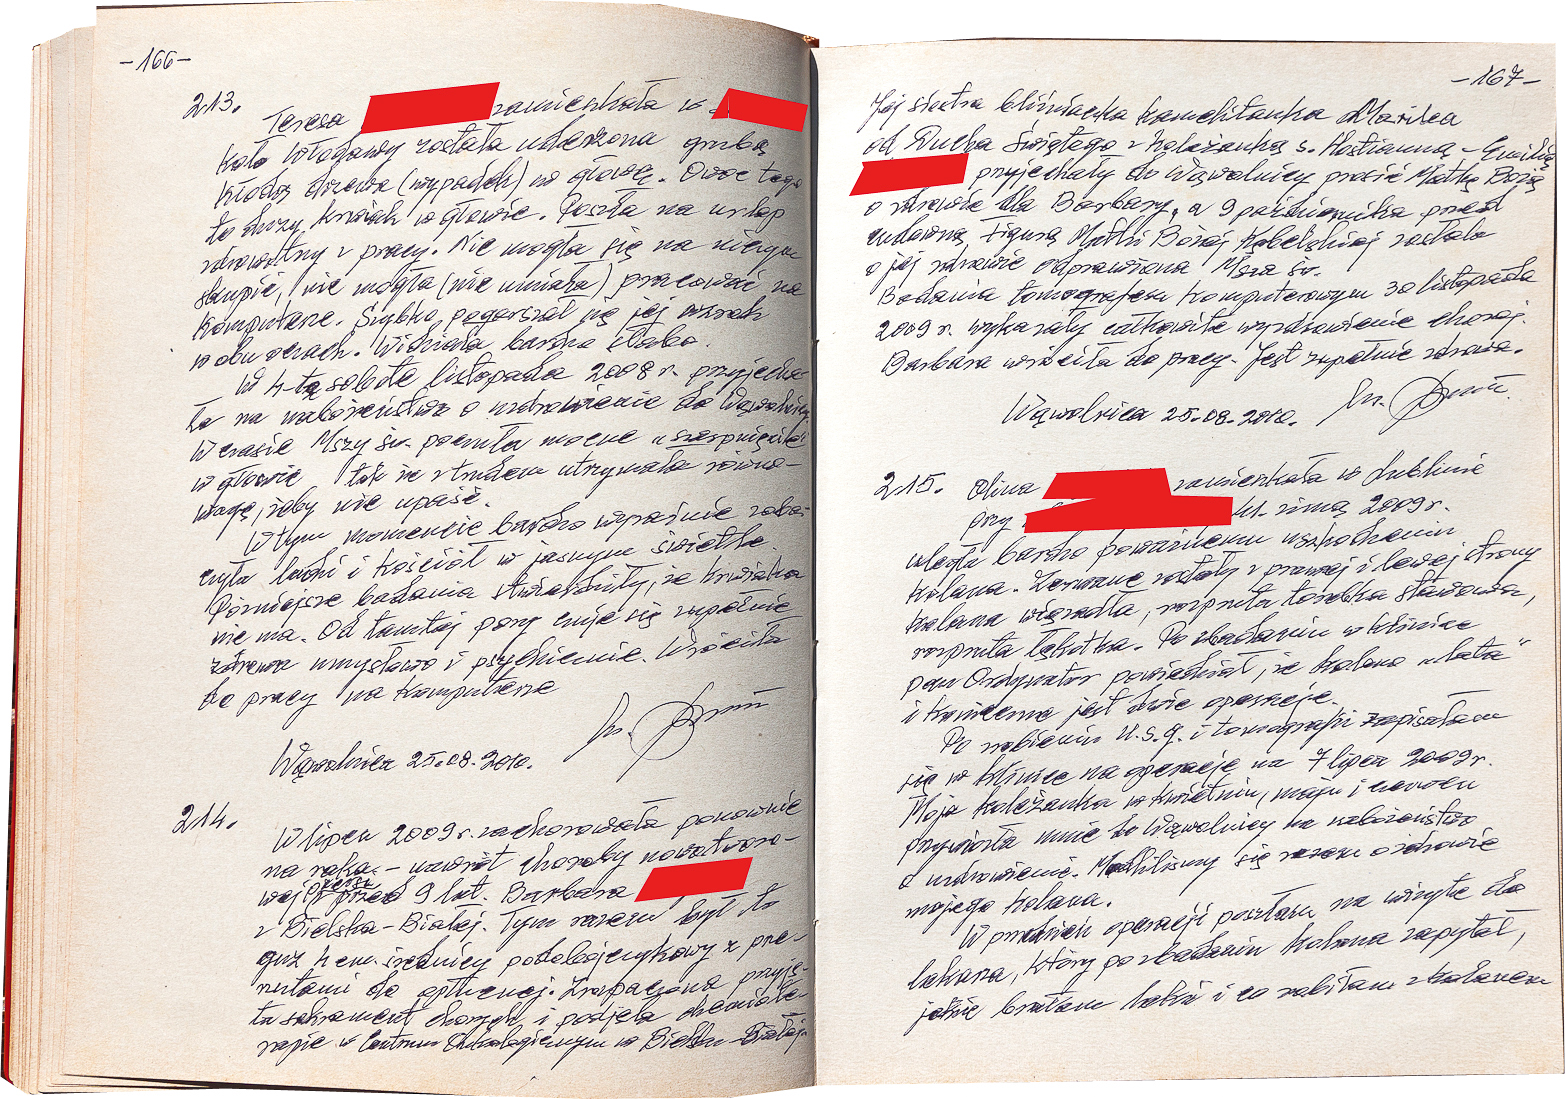 -166-
213.
Teresa zamieszkała w
koło Włodawy została uderzona grubą
kłodą drzewa (wypadek) w głowę. Owoc tego
to duży krwiak w głowie. Poszła na urlop
zdrowotny z pracy. Nie mogła się na niczym
skupić, nie mogła (nie umiała) pracować na
komputerze. Szybko pogarszał się jej wzrok
w obu oczach. Widziała bardzo słabo.
W 4-tą sobotę listopada 2008 r. przyjecha-
ła na nabożeństwo o uzdrowienie do Wąwolnicy
W czasie Mszy św. poczuła mocne "szarpnięcie"
w głowie tak że z trudem utrzymała równo-
wagę, żeby nie upaść.
W tym momencie bardzo wyraźnie zoba-
czyła ludzi i kościół w jasnym świetle.
Późniejsze badania stwierdziły, że krwiaka
nie ma. Od tamtej pory czuje się zupełnie
zdrowa umysłowo i psychicznie. Wróciła
do pracy na komputerze
Wąwolnica 25.08.2010.
214.
W lipcu 2009 r. zachorowała ponownie
na raka. - nawrót choroby nowotworo-
wej piersi przed 9 lat. Barbara
z Bielska-Białej. Tym razem był to
guz 4 cm. średnicy podobojczykowy z prze-
rzutami do opłucnej. Zrozpaczona przyję-
ła sakrament chorych i podjęła chemiote-
rapię w Centrum Onkologicznym w Bielsku-Białej.
-167-
Jej siostra bliźniaczka karmelitanka Marilea
od Ducha Świętego z koleżanką s. Hostianną - Emilią
przyjechały do Wąwolnicy prosić Matkę Bożą
o zdrowie dla Barbary, a 9 października przed
cudowną Figurą Matki Bożej Kębelskiej została
o jej zdrowie odprawiona Msza św.
Badania tomografem komputerowym 30 listopada
2009 r. wykazały całkowite wyzdrowienie chorej.
Barbara wróciła do pracy. Jest zupełnie zdrowa.
Wąwolnica 25.08.2010.
215. Olina zamieszkała w Lublinie
przy zimą 2009 r.
uległa bardzo poważnemu uszkodzeniu
kolana. Zerwane zostały z prawej i lewej strony
kolana więzadła, rozpruta torebka stawowa,
rozpruta łąkotka. Po zbadaniu w klinice
pan Ordynator powiedział, że kolano "lata"
i konieczne jest dwie operacje.
Po zrobieniu U.S.G. i tomografii zapisałam
się w klinice na operację na 7 lipca 2009 r.
Moja koleżanka w kwietniu, maju i czerwcu
przywiozła mnie do Wąwolnicy na nabożeństwo
o uzdrowienie. Modliliśmy się razem o zdrowie
mojego kolana.
W przeddzień operacji poszłam na wizytę do
lekarza, który po zbadaniu kolana zapytał,
jakie brałam leki i co robiłam z kolanem